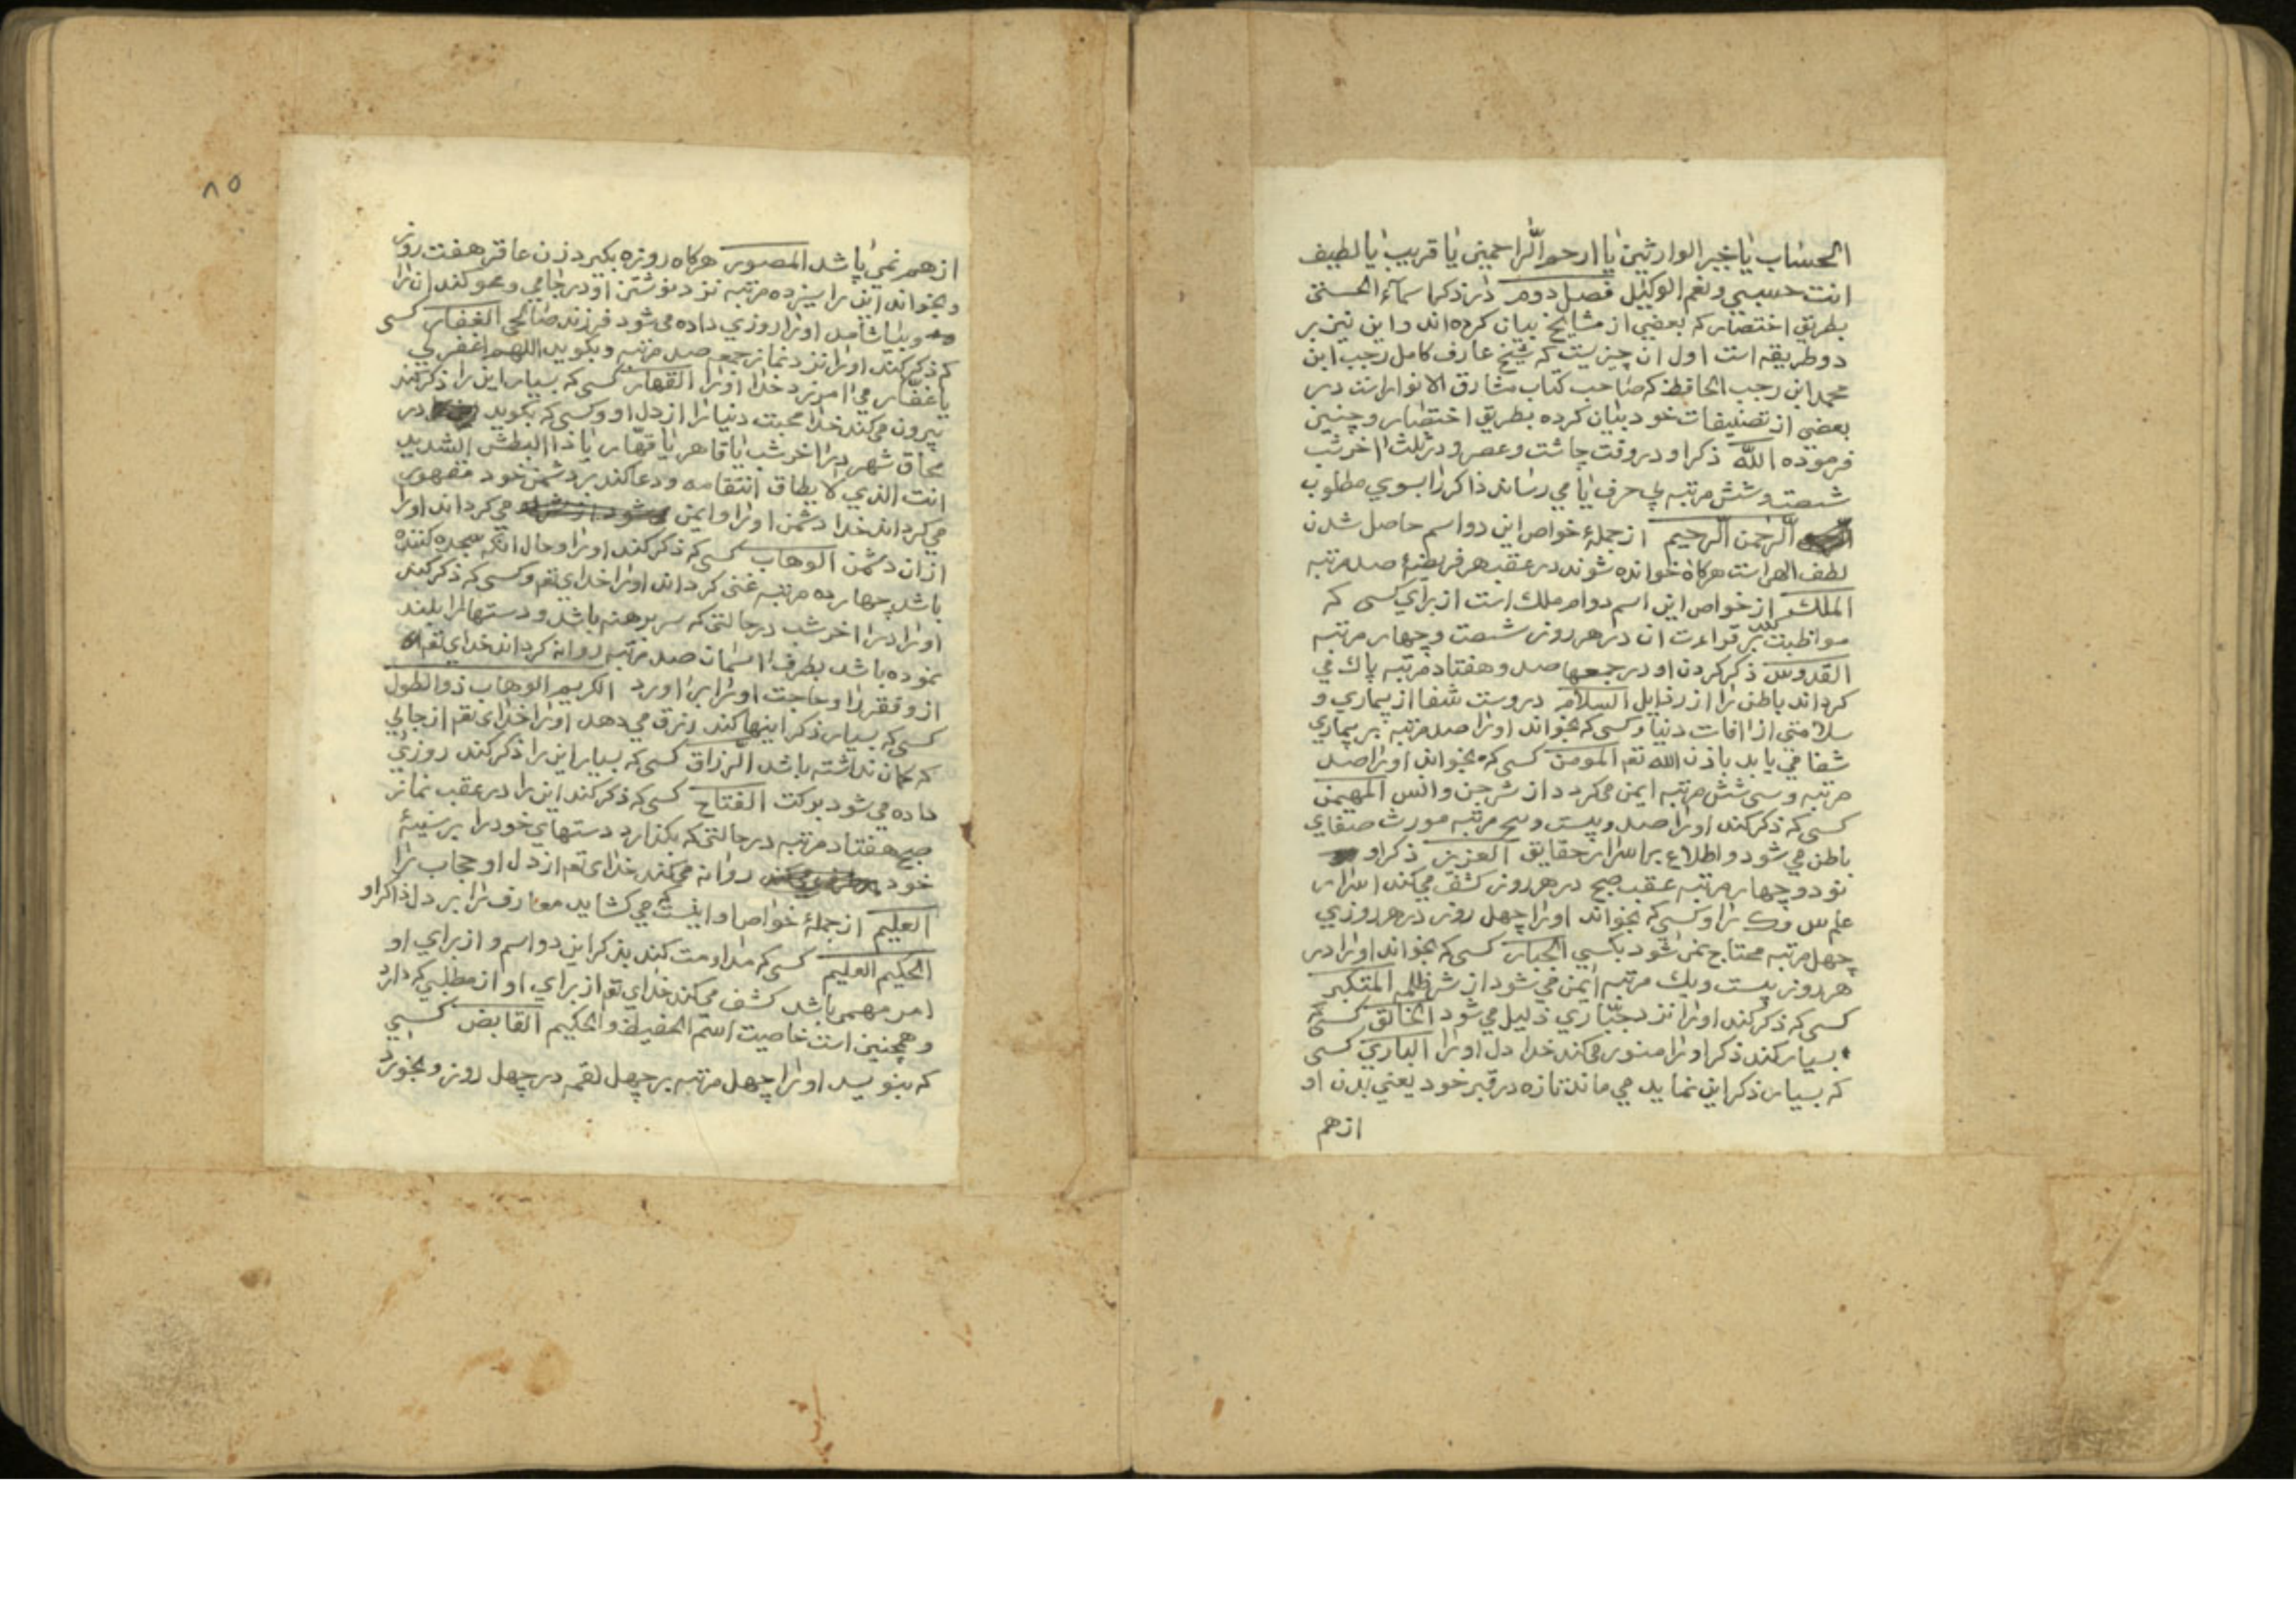 الحساب يا خير الوارثين يا ارحم الراحمين يا قريب يا لطيف
انت حسبي ونعم الوكيل فصل دوم در ذكر اسمآء الحسنى
بطريق اختصار كه بعضي از مشايخ بيان كرده اند واين نيز بر
دو طريقه است اول ان چيزيست كه شيخ عارف كامل رجب ابن
محمد ابن رجب الحافظ كه صاحب كتاب مشارق الانوار است در
بعضي از تصنيفات خود بيان كرده بطريق اختصار و چنين
فرموده الله ذكر او در وقت چاشت وعصر و در ثلث اخر شب
شصت وشش مرتبه بي حرف يا مي رساند ذاكر را بسوي مطلوب
الرحمن الرحيم از جملهٔ خواص اين دو اسم حاصل شدن
لطف الهر است هركاه خوانده شوند در عقب هر فريضهٔ صد مرتبه
الملك از خواص اين اسم دوام ملك است از براي كسى كه
مواظبت كند بر قراءت ان در هر روز شصت وچهار مرتبه
القدوس ذكر كردن او در جمعها صد وهفتاد مرتبه پاك مي
كرداند باطن را از رذايل السلام دروست شفا از بيماري و
سلامتى از افات دنيا وكسى كه بخواند او را صد مرتبه بر بيماري
شفا مي يابد باذن الله تعم المومن كسى كه بخواند او را صد
مرتبه وسى شش مرتبه ايمن مي كردد از شر جن وانس المهيمن
كسى كه ذكر كند او را صد وبيست وپنج مرتبه مورث صفاي
باطن مي شود واطلاع بر اسرار حقايق العزيز ذكر او
نود وچهار مرتبه عقب صبح در هر روز كشف مي كند اسرار
علم را وكسى كه بخواند او را چهل روز در هر روزي
چهل مرتبه محتاج نمى شود بكسي الجبار كسى كه بخواند او را در
هر روز بيست ويك مرتبه ايمن مي شود از شر ظلمه المتكبر
كسى كه ذكر كند او را نزد جبّاري ذليل مي شود الخالق كسى كه
بسيار كند ذكر او را منور مي كند خدا دل او را الباري كسى
كه بسيار ذكر اين نمايد مي ماند تازه در قبر خود يعني بدن او
از هم
٨٥
از هم نمي پاشد المصور هركاه روزه بكيرد زن عاقر هفت روز
وبخواند اين را سيزده مرتبه نزد نوشتن او در جامي ومحو كند ان را
وبياشامد او را روزي داده مي شود فرزند صالحى الغفار كسى
كه ذكر كند او را نزد نماز جمعه صد مرتبه وبكويد اللهم اغفر لي
يا غفّار مي امرزد خدا او را القهار كسى كه بسيار اين را ذكر كند
بيرون مي كند خدا محبت دنيا را از دل او وكسى كه بكويد در
محاق شهر در اخر شب يا قاهر يا قهّار يا ذا البطش الشديد
انت الذي لا يطاق انتقامه ودعا كند بر دشمن خود مقهور
مي كرداند خدا دشمن او را وايمن مي كرداند او را
از ان دشمن الوهاب كسى كه ذكر كند او را وحال انكه سجده كننده
باشد چهارده مرتبه غنى كرداند او را خداي تعم وكسى كه ذكر كند
او را در اخر شب در حالتى كه سر برهنه باشد ودستها را بلند
نموده باشد بطرف اسمان صد مرتبه روانه كرداند خداي تعم
از و فقر را وحاجت او را براورد الكريم الوهاب ذو الطول
كسى كه بسيار ذكر اينها كند رزق مي دهد او را خداي تعم از جائي
كه كمان نداشته باشد الرزاق كسى كه بسيار اين را ذكر كند روزي
داده مي شود بركت الفتاح كسى كه ذكر كند اين را در عقب نماز
صبح هفتاد مرتبه در حالتى كه بكذارد دستهاي خود را بر سينهٔ
خود روانه مي كند خداي تعم از دل او حجاب را
العليم از جملهٔ خواص او اينست كه مي كشايد معارف را بر دل ذاكر او
الحكيم العليم كسى كه مداومت كند بذكر اين دو اسم و از براي او
امر مهمى باشد كشف مي كند خداي تعم از براي او از مطلبي كه دارد
وهمچنين است خاصيت اسم الحفيظ والحكيم القابض كسي
كه بنويسد او را چهل مرتبه بر چهل لقمه در چهل روز وبخورد